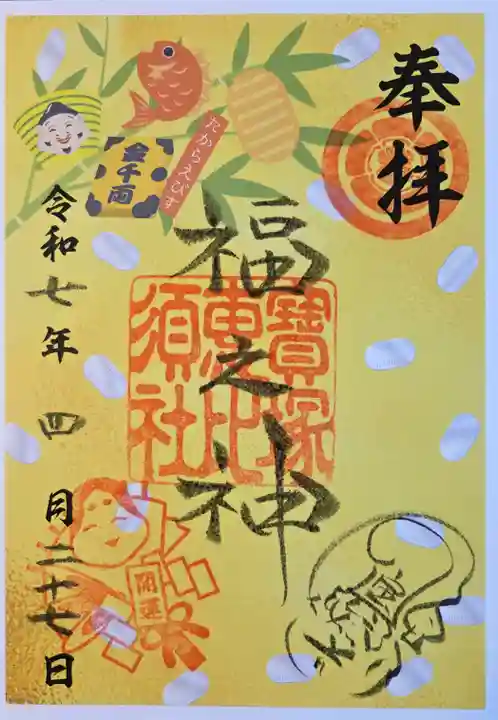 奉拝
たからえびす
金千両
福之神
寶塚
恵比
須社
令和七年 四 月二十七日
開運